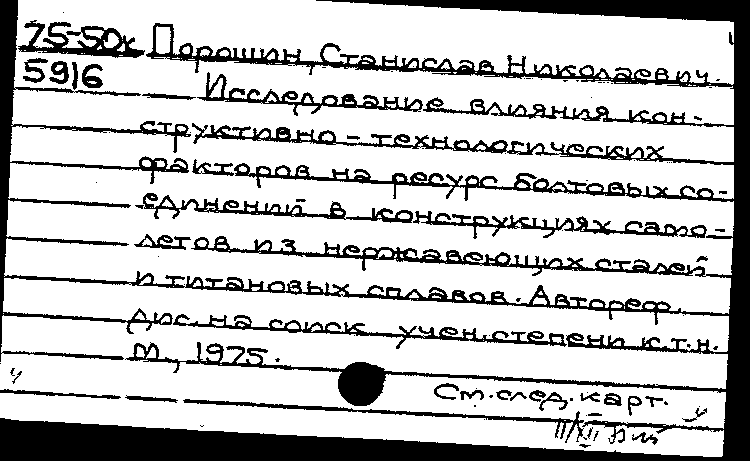 75-50к Порошин, Станислав Николаевич.
5916 Исследование влияния кон-
структивно-технологических
факторов на ресурс болтовых со-
единений в конструкциях само-
летов из нержавеющих сталей
и титановых сплавов. Автореф.
дис. на соиск учен. степени к.т.н.
М., 1975.
См. след. карт.
II/XII